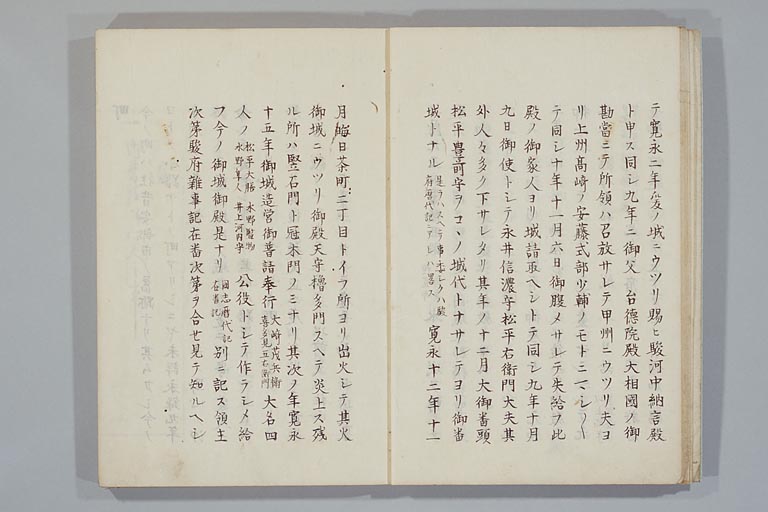 テ寛永二年爰ノ城ニウツリ賜ヒ駿河中納言殿
ト申ス同シ九年ニ御父 台徳院殿大相國ノ御
勘當ニテ所領ハ召放サレテ甲州ニウツリ夫ヨ
リ上州高崎ノ安藤式部少輔ノモトニマシ
テ同シ十年十一月六日御腹メサレテ失給フ此
殿ノ御家人ヨリ城請取ヘシトテ同シ九年十月
九日御使トシテ永井信濃守松平右衛門大夫其
外人々多ク下サレタリ其年ノ十二月大御畨頭
松平豊前守ヲコヽノ城代トナサレテヨリ御畨
城トナル 是ラハスヘテ事
府暦代記ニ 寛永十二年十一
月晦日茶町二丁目トイフ所ヨリ出火シテ其火
御城ニウツリ御殿天守櫓多門スヘテ炎上ス残
ル所ハ竪石門ト冠木門ノミナリ其次ノ年寛永
十五年御城造営御普請奉行 大崎茂兵衛
喜多見五右衛門 大名四
人ノ 松平大膳 水野監物
水野隼人 井上河内守 公役トシテ作ラシメ給
フ今ノ御城御殿是ナリ 國志暦代記
在畨記 別ニ記ス領主
次第駿府雑事記在畨次第ヲ合セ見テ知ルヘシ